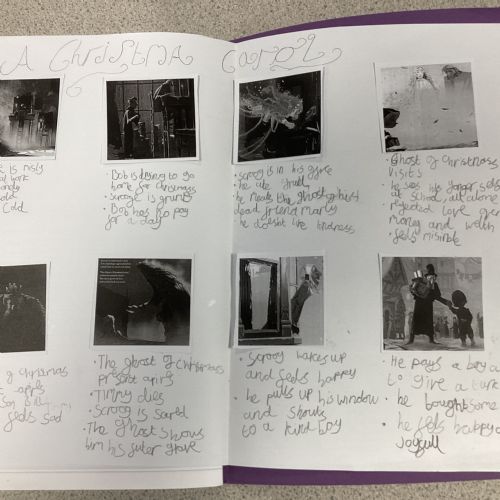 A Christma Carol
is misly
work
cold
Cold
• Bob is trying to go
home for christmas
• Scroge is grumpy
• Bob has no pay
for a day
• scroog is in his
• he ate
• he meets the ghost of his
dead friend marly
• he doesnt like kindness
• Ghost of Christmass
visits
• he sees his younger self
at school, all alone
• rejected love over
money and welth
• feels misrible
of christmas
feels sad
• The ghost of Christmass
present
• Timmy dies
• Scroog is scared
• The Ghost Shows
him his futer grave
• Scroog wakes up
and feels happy
• he pulls up his window
and shouts
to a kind boy
• He pays a boy
to give a
• he bought some
• he fells happy
Joyfull